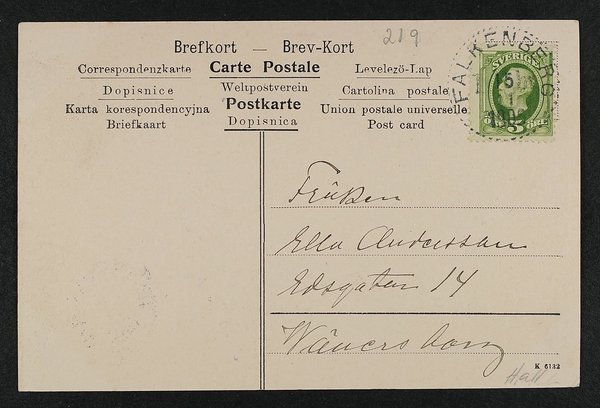 219
Brefkort — Brev-Kort
Correspondenzkarte Carte Postale Levelező-Lap
Dopisnice Weltpostverein Cartolina postale
Karta korespondencyjna Postkarte Union postale universelle
Briefkaart Dopisnica Post card
FALKENBERG
SVERIGE
5 ÖRE
Fröken
Ella Andersson
Edsgatan 14
Wänersborg
K 6132